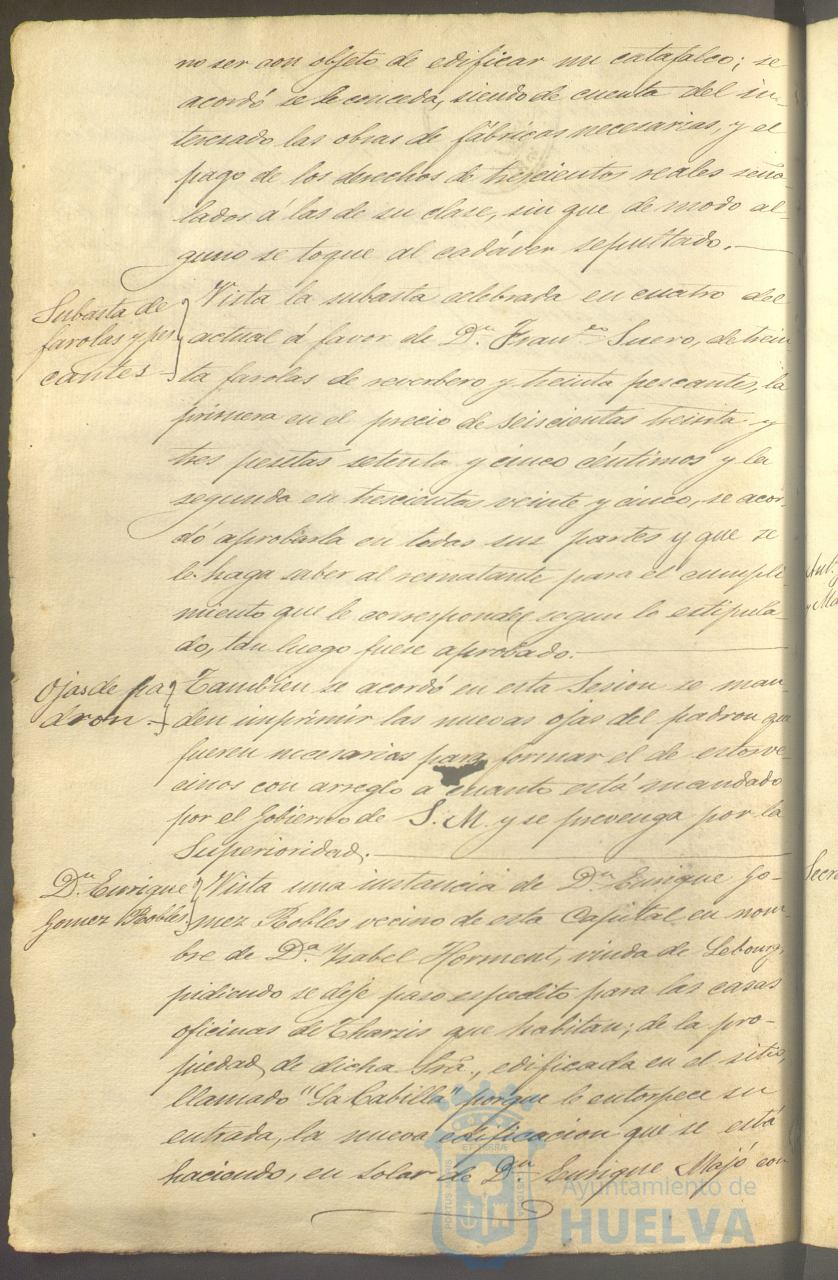 no ser con objeto de edificar un catafalco; se
acordó se le conceda, siendo de cuenta del in-
teresado las obras de fábricas necesarias, y el
pago de los derechos de trescientos reales seña-
lados á las de su clase, sin que de modo al-
guno se toque al cadáver sepultado.
Subasta de
farolas y pes
cantes
Vista la subasta celebrada en cuatro del
actual á favor de Dn. Franco. Suero, de trein-
ta farolas de reverbero y treinta pescantes, la
primera en el precio de seiscientas treinta y
tres pesetas setenta y cinco céntimos y la
segunda en trescientas veinte y cinco, se acor-
dó aprobarla en todas sus partes y que se
le haga saber al rematante para el cumpli-
miento que le corresponde segun lo estipula-
do, tan luego fuese aprobado.
Ojas de pa
dron
Tambien se acordó en esta Sesion se man-
den imprimir las nuevas ojas del padron que
fueren necesarias para formar el de estos ve-
cinos con arreglo a cuanto está mandado
por el Gobierno de S. M. y se prevenga por la
Superioridad.
Dn. Enrique
Gomez Robles
Vista una instancia de Dn. Enrique Go-
mez Robles vecino de esta Capital en nom-
bre de Da. Ysabel Horment, viuda de Lebourg,
pidiendo se deje paso espedito para las casas
oficinas de Tharsis que habitan, de la pro-
piedad de dicha Sra., edificada en el sitio,
llamado "La Cabilla" porque le entorpece su
entrada, la nueva edificacion que se está
haciendo, en solar de Dn. Enrique Majó con
Ayuntamiento de
HUELVA